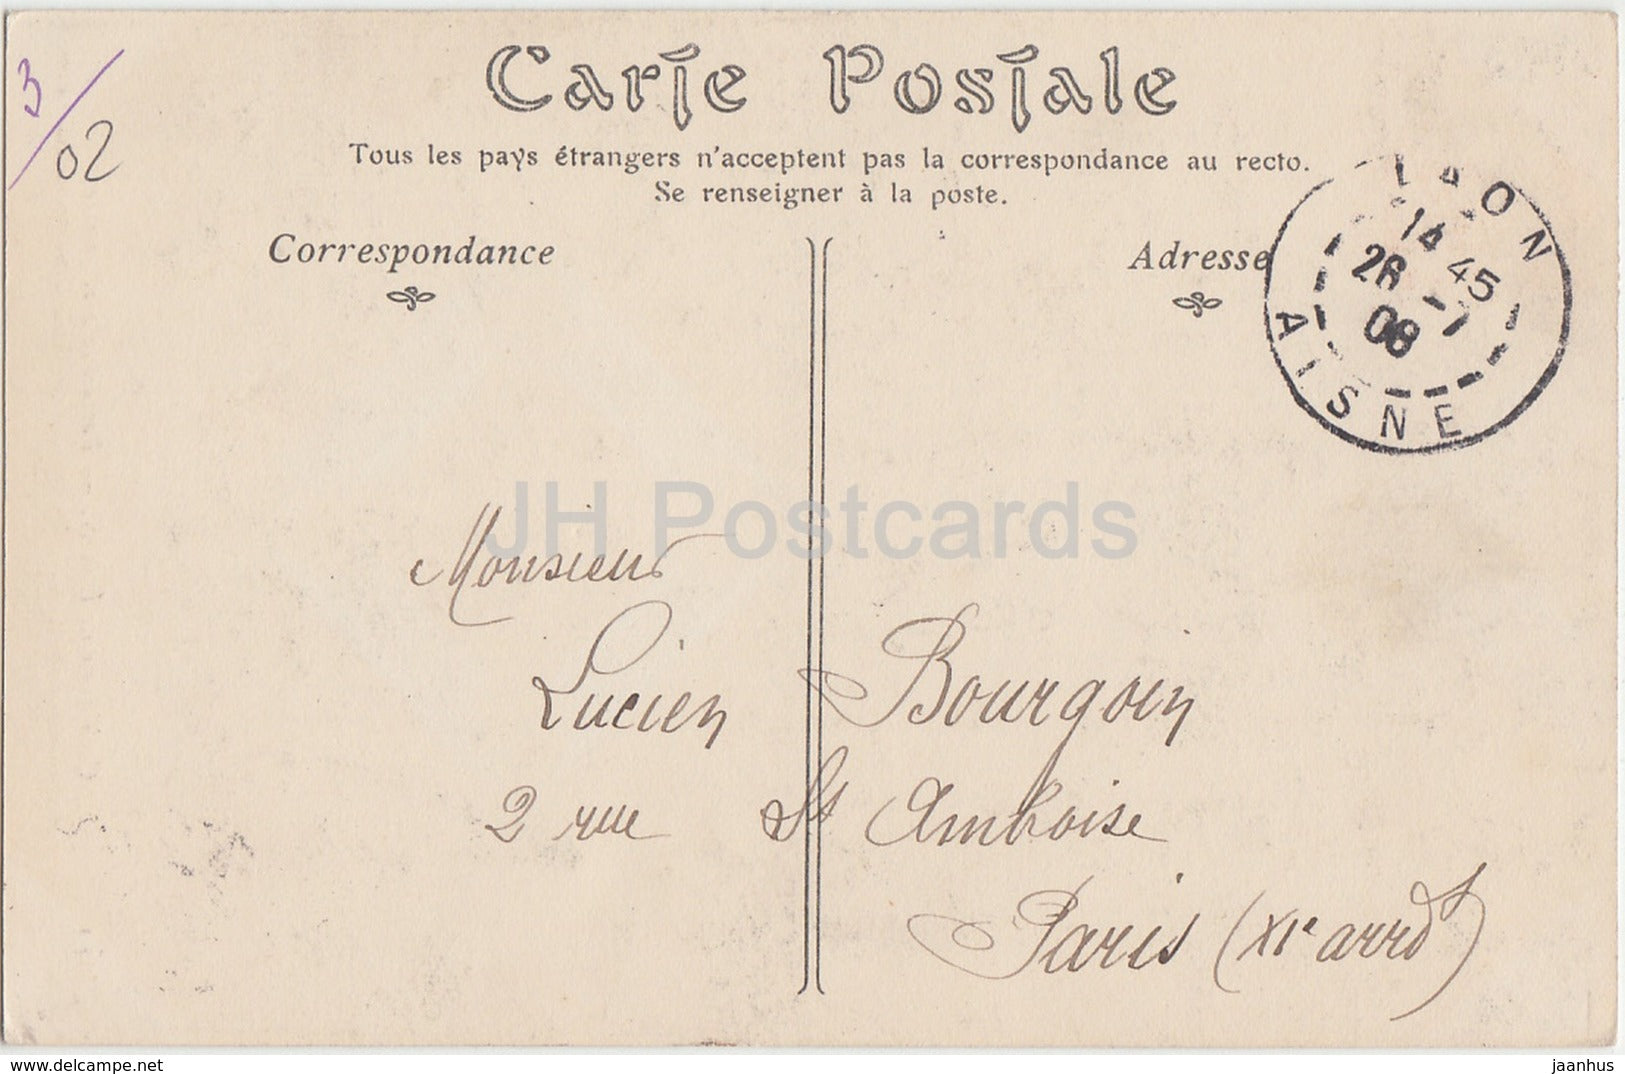 3/02
Carte Postale
Tous les pays étrangers n'acceptent pas la correspondance au recto.
Se renseigner à la poste.
Correspondance
Adresse
LAON
14 45
26 -1
08
AISNE
JH Postcards
Monsieur
Lucien Bourgoin
2 rue St Ambroise
Paris (XIe arrdt)
www.delcampe.net
jaanhus